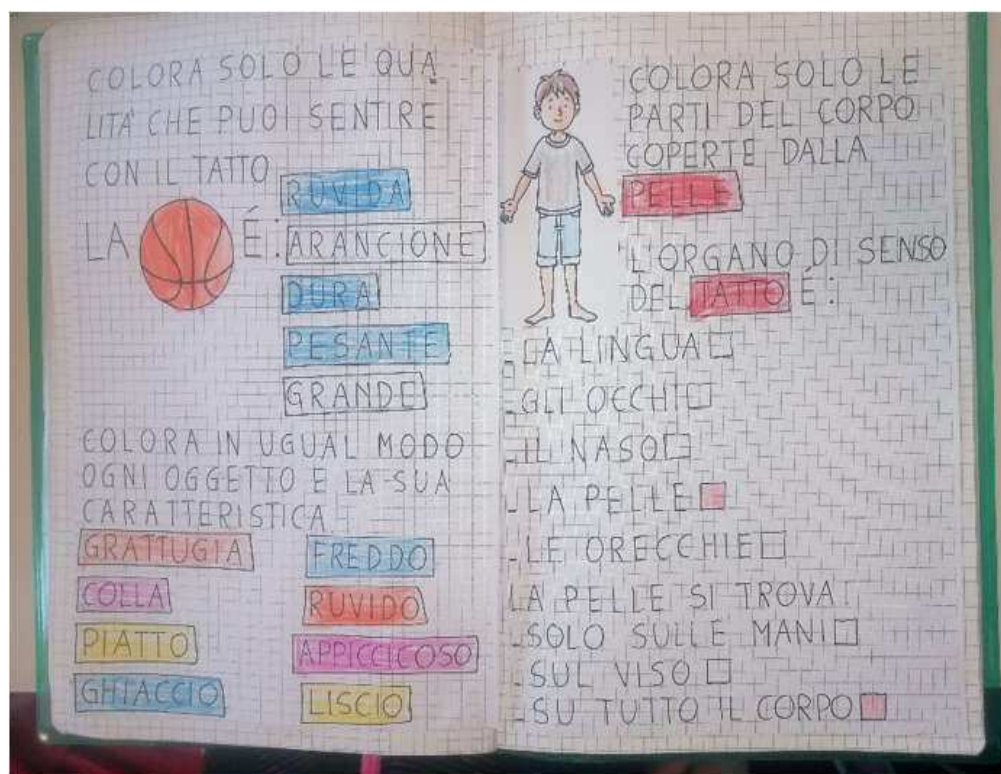 COLORA SOLO LE QUA
LITÀ CHE PUOI SENTIRE
CON IL TATTO
RUVIDA
LA É: ARANCIONE
DURA
PESANTE
GRANDE
COLORA IN UGUAL MODO
OGNI OGGETTO E LA SUA
CARATTERISTICA
GRATTUGIA FREDDO
COLLA RUVIDO
PIATTO APPICCICOSO
GHIACCIO LISCIO
COLORA SOLO LE
PARTI DEL CORPO
COPERTE DALLA
PELLE
L'ORGANO DI SENSO
DEL TATTO É:
-LA LINGUA
-GLI OCCHI
-IL NASO
-LA PELLE
-LE ORECCHIE
LA PELLE SI TROVA:
-SOLO SULLE MANI
-SUL VISO
-SU TUTTO IL CORPO